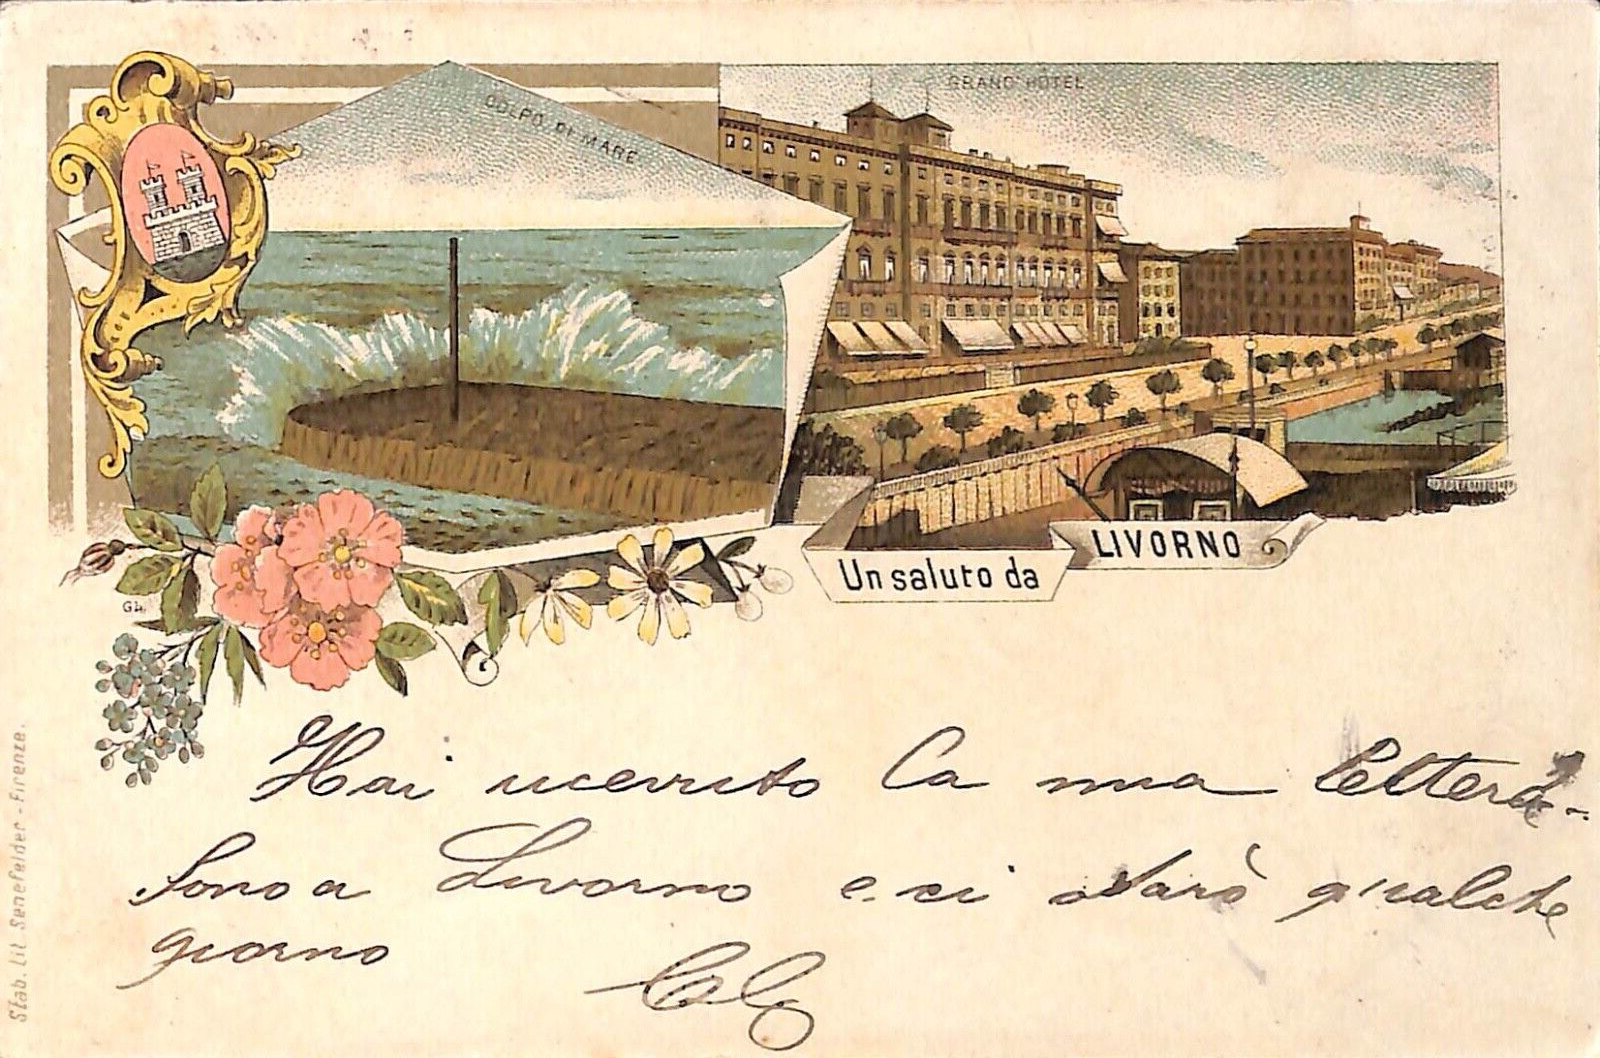 COLPO DI MARE
GRAND HÔTEL
Un saluto da
LIVORNO
GL
Hai ricevuto la mia lettera -
Sono a Livorno e ci starò qualche
giorno
Stab. Lit. Senefelder - Firenze.